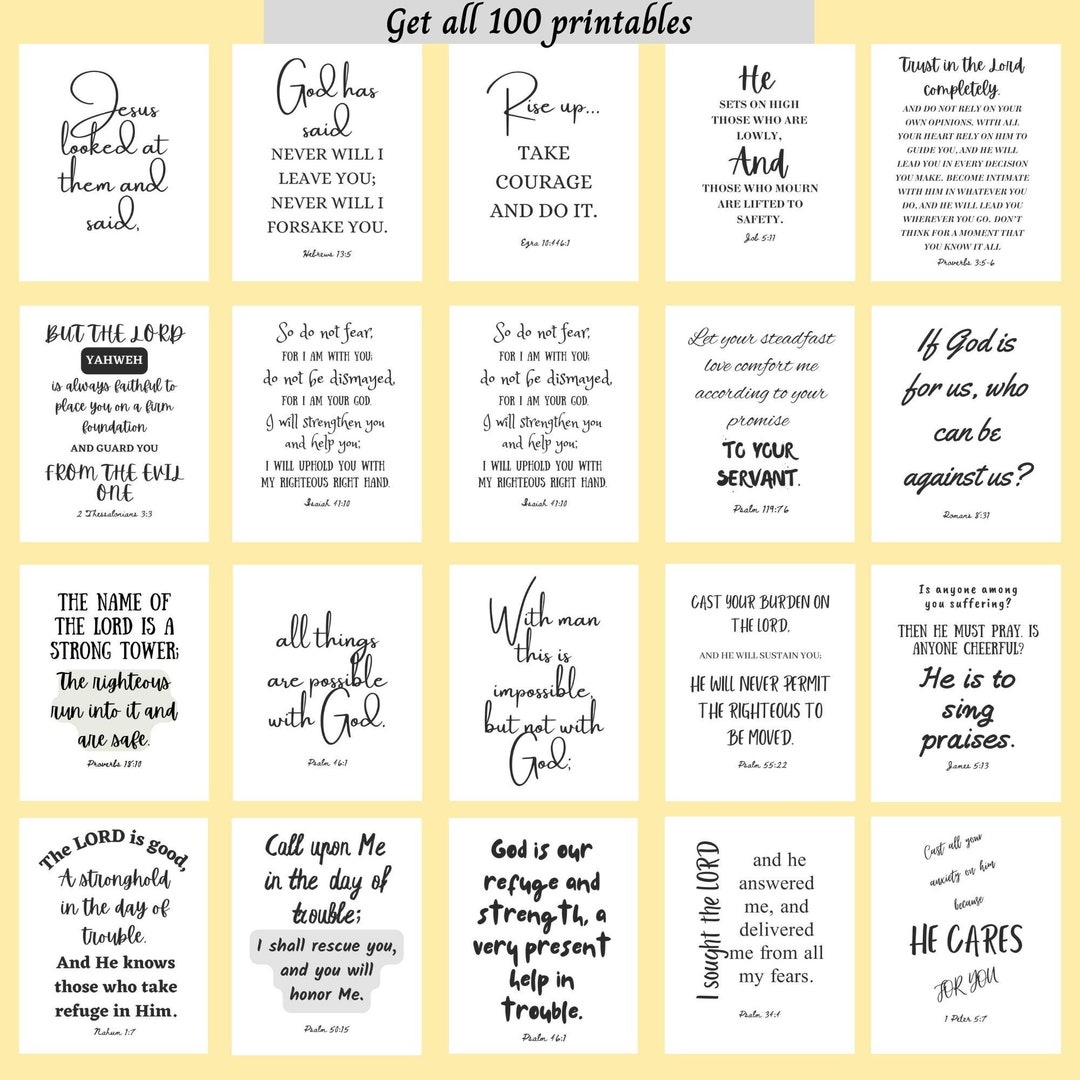 Get all 100 printables
Jesus
looked at
them and
said,
God has
said
NEVER WILL I
LEAVE YOU;
NEVER WILL I
FORSAKE YOU.
Hebrews 13:5
Rise up...
TAKE
COURAGE
AND DO IT.
Ezra 10:4
He
SETS ON HIGH
THOSE WHO ARE
LOWLY,
And
THOSE WHO MOURN
ARE LIFTED TO
SAFETY.
Job 5:11
Trust in the Lord
completely.
AND DO NOT RELY ON YOUR
OWN OPINIONS, WITH ALL
YOUR HEART RELY ON HIM TO
GUIDE YOU, AND HE WILL
LEAD YOU IN EVERY DECISION
YOU MAKE. BECOME INTIMATE
WITH HIM IN WHATEVER YOU
DO, AND HE WILL LEAD YOU
WHEREVER YOU GO. DON'T
THINK FOR A MOMENT THAT
YOU KNOW IT ALL
Proverbs 3:5-6
BUT THE LORD
YAHWEH
is always faithful to
place you on a firm
foundation
AND GUARD YOU
FROM THE EVIL
ONE
2 Thessalonians 3:3
So do not fear,
FOR I AM WITH YOU;
do not be dismayed,
FOR I AM YOUR GOD.
I will strengthen you
and help you;
I WILL UPHOLD YOU WITH
MY RIGHTEOUS RIGHT HAND.
Isaiah 41:10
So do not fear,
FOR I AM WITH YOU;
do not be dismayed,
FOR I AM YOUR GOD.
I will strengthen you
and help you;
I WILL UPHOLD YOU WITH
MY RIGHTEOUS RIGHT HAND.
Isaiah 41:10
Let your steadfast
love comfort me
according to your
promise
TO YOUR
SERVANT.
Psalm 119:76
If God is
for us, who
can be
against us?
Romans 8:31
THE NAME OF
THE LORD IS A
STRONG TOWER;
The righteous
run into it and
are safe.
Proverbs 18:10
all things
are possible
with God.
Psalm 46:1
With man
this is
impossible,
but not with
God;
CAST YOUR BURDEN ON
THE LORD,
AND HE WILL SUSTAIN YOU;
HE WILL NEVER PERMIT
THE RIGHTEOUS TO
BE MOVED.
Psalm 55:22
Is anyone among
you suffering?
THEN HE MUST PRAY. IS
ANYONE CHEERFUL?
He is to
sing
praises.
James 5:13
The LORD is good,
A stronghold
in the day of
trouble.
And He knows
those who take
refuge in Him.
Nahum 1:7
Call upon Me
in the day of
trouble;
I shall rescue you,
and you will
honor Me.
Psalm 50:15
God is our
refuge and
strength, a
very present
help in
trouble.
Psalm 46:1
I sought the LORD
and he
answered
me, and
delivered
me from all
my fears.
Psalm 34:4
Cast all your
anxiety on him
because
HE CARES
FOR YOU
1 Peter 5:7